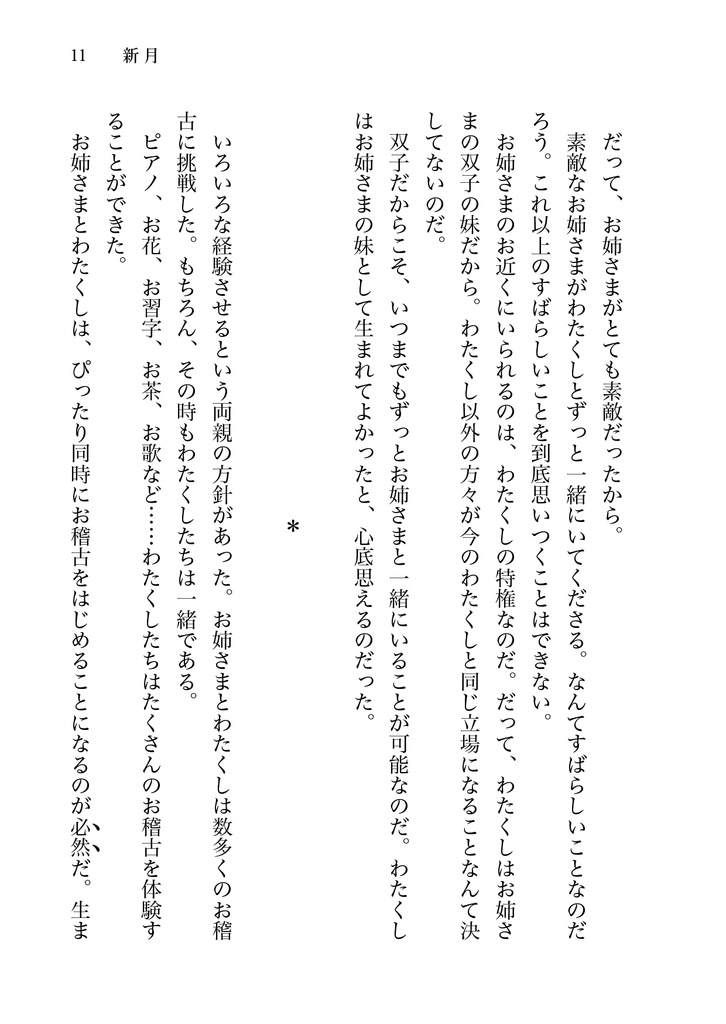 11　新月
だって、お姉さまがとても素敵だったから。
素敵なお姉さまがわたくしとずっと一緒にいてくださる。なんてすばらしいことなのだ
ろう。これ以上のすばらしいことを到底思いつくことはできない。
お姉さまのお近くにいられるのは、わたくしの特権なのだ。だって、わたくしはお姉さ
まの双子の妹だから。わたくし以外の方々が今のわたくしと同じ立場になることなんて決
してないのだ。
双子だからこそ、いつまでもずっとお姉さまと一緒にいることが可能なのだ。わたくし
はお姉さまの妹として生まれてよかったと、心底思えるのだった。
*
いろいろな経験させるという両親の方針があった。お姉さまとわたくしは数多くのお稽
古に挑戦した。もちろん、その時もわたくしたちは一緒である。
ピアノ、お花、お習字、お茶、お歌など……わたくしたちはたくさんのお稽古を体験す
ることができた。
お姉さまとわたくしは、ぴったり同時にお稽古をはじめることになるのが必然だ。生ま